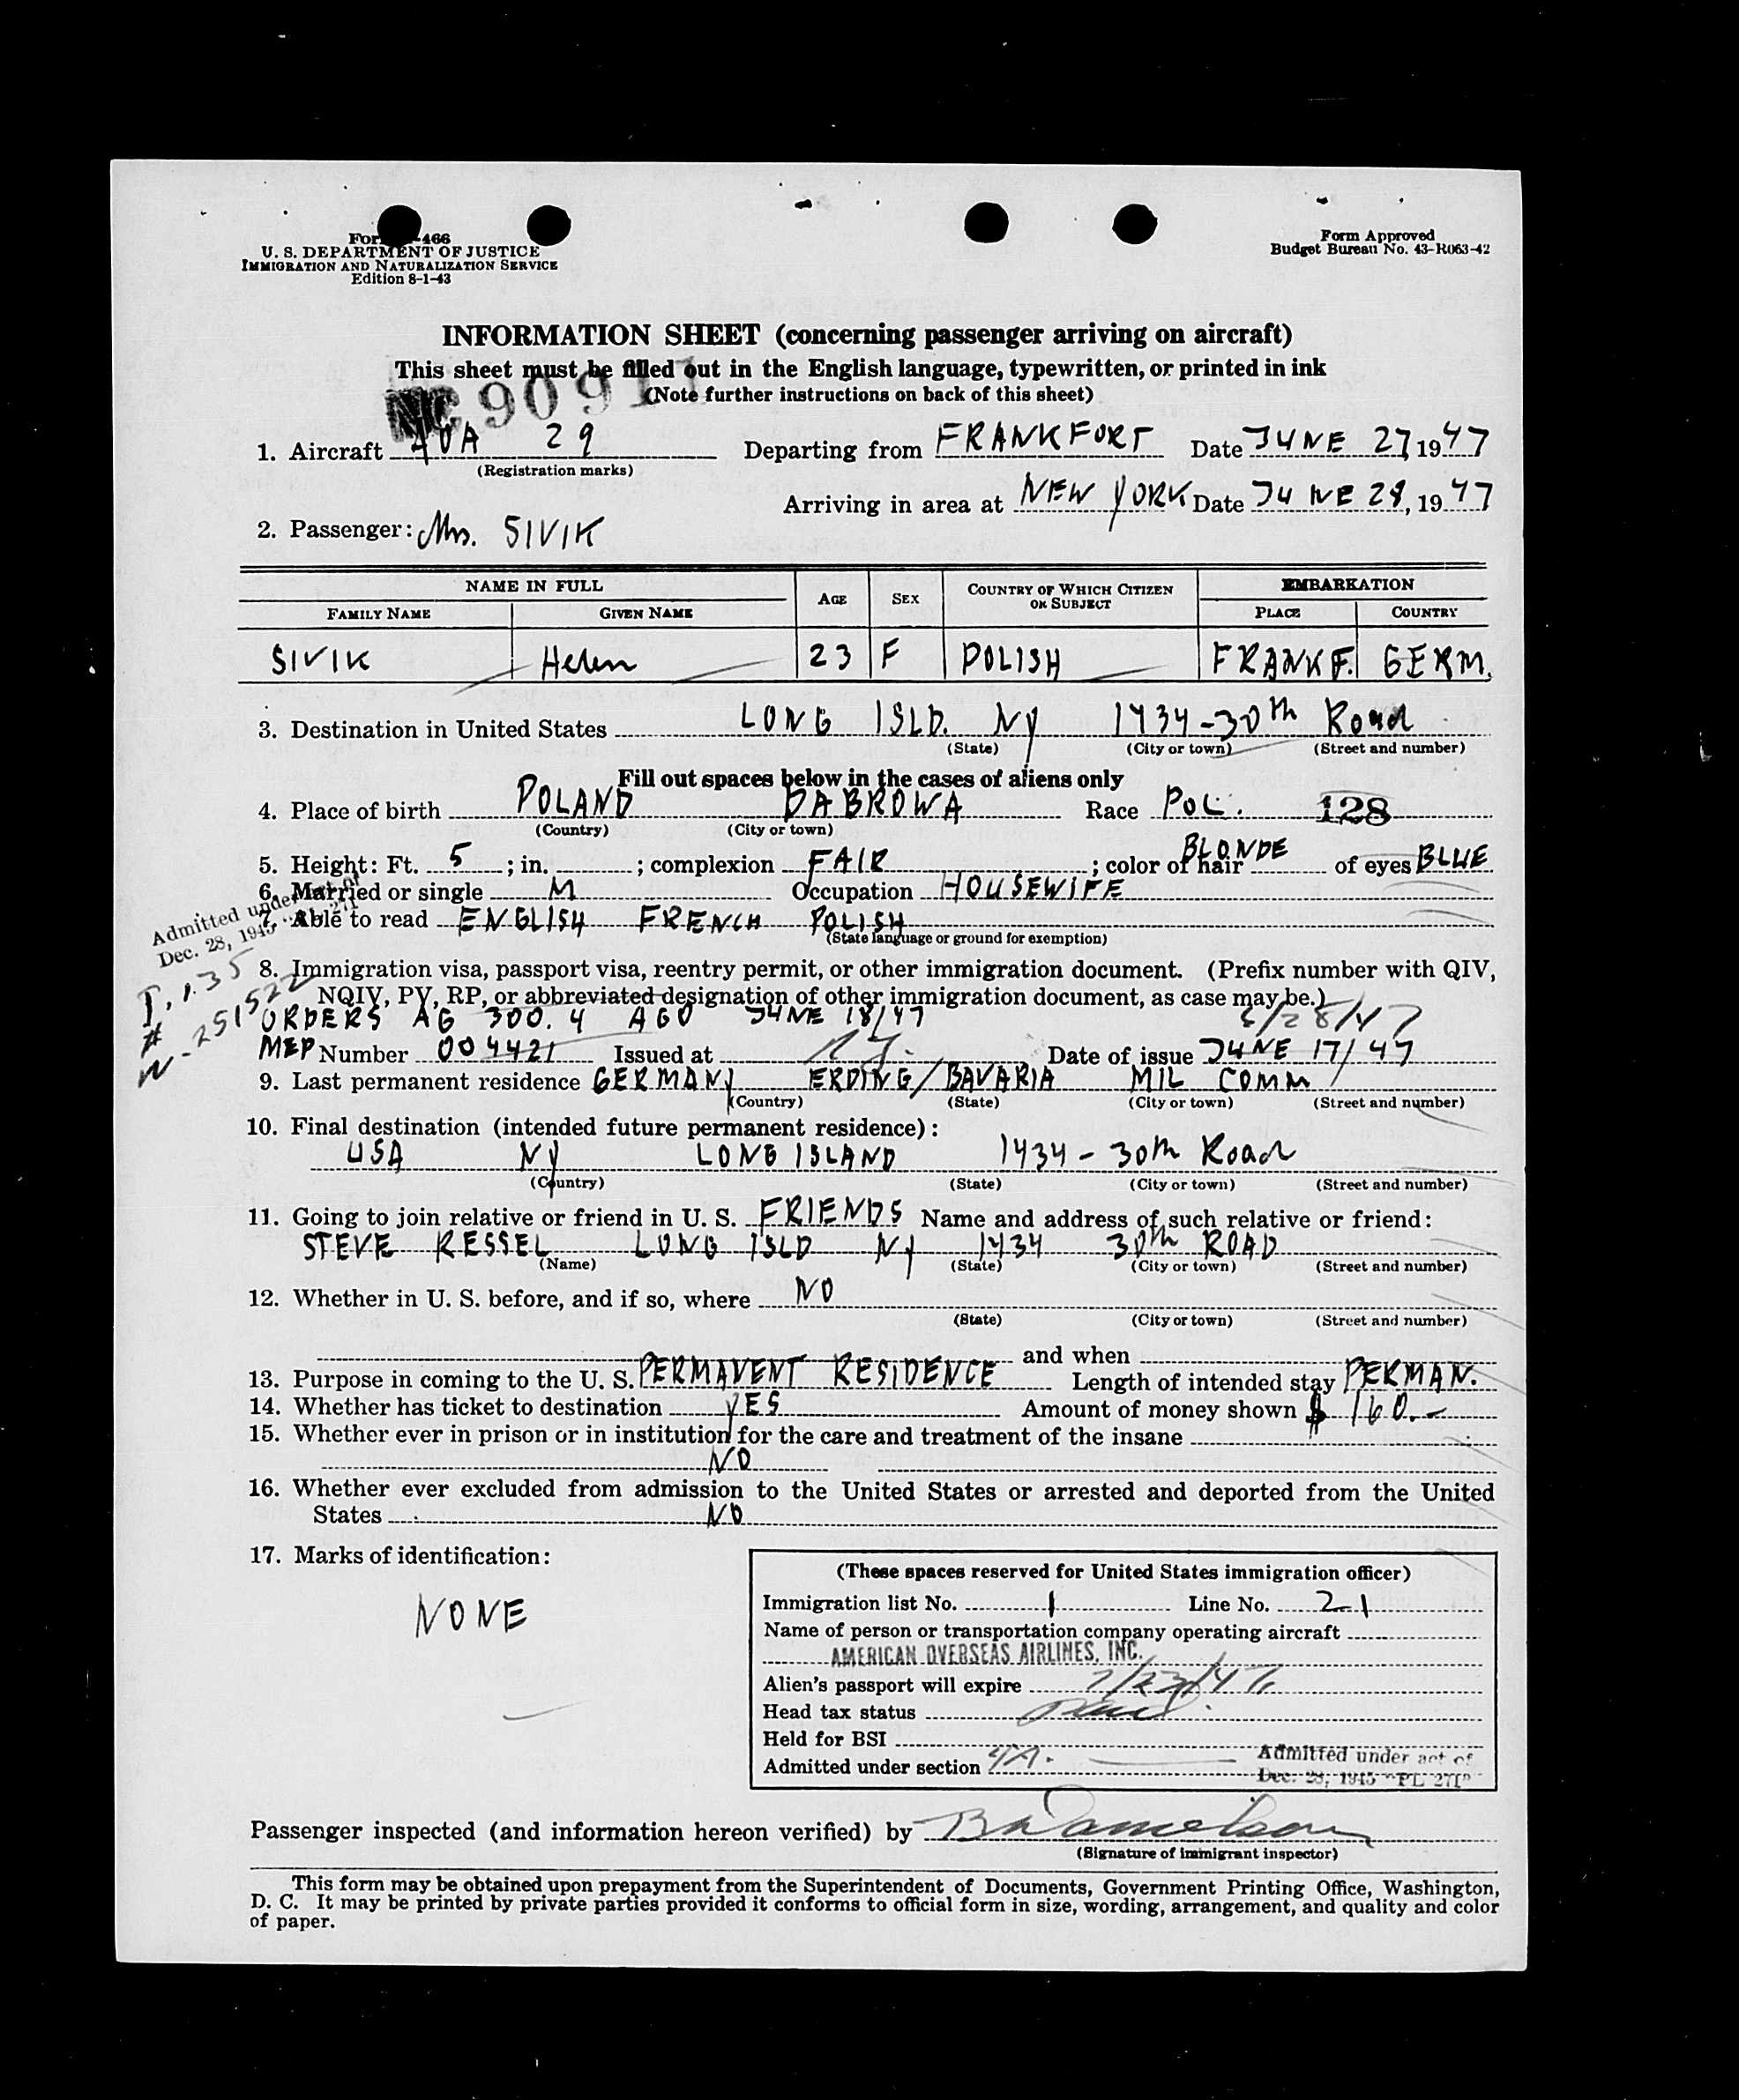 466
U. S. DEPARTMENT OF JUSTICE
IMMIGRATION AND NATURALIZATION SERVICE
Edition 8-1-43
Form Approved
Budget Bureau No. 43-R063-42
INFORMATION SHEET (concerning passenger arriving on aircraft)
This sheet must be filled out in the English language, typewritten, or printed in ink
(Note further instructions on back of this sheet)
1. Aircraft 29 Departing from FRANKFORT Date JUNE 27, 1947
(Registration marks)
Arriving in area at NEW YORK Date JUNE 28, 1947
2. Passenger: Mrs. SIVIK
NAME IN FULL AGE SEX COUNTRY OF WHICH CITIZEN OR SUBJECT EMBARKATION
FAMILY NAME GIVEN NAME PLACE COUNTRY
SIVIK Helen 23 F POLISH FRANKF. GERM.
3. Destination in United States LONG ISLD. NY 1434-30th Road
(State) (City or town) (Street and number)
Fill out spaces below in the cases of aliens only
4. Place of birth POLAND DABROWA Race POL. 128
(Country) (City or town)
5. Height: Ft. 5 ; in. ; complexion FAIR ; color of hair BLONDE of eyes BLUE
6. Married or single M Occupation HOUSEWIFE
7. Able to read ENGLISH FRENCH POLISH
(State language or ground for exemption)
Admitted under act of
Dec. 28, 1945 "PL 271"
8. Immigration visa, passport visa, reentry permit, or other immigration document. (Prefix number with QIV,
NQIV, PV, RP, or abbreviated designation of other immigration document, as case may be.)
ORDERS AG 300.4 AGO JUNE 18/47 6/28/47
MEP Number 004421 Issued at Date of issue JUNE 17/47
9. Last permanent residence GERMANY ERDING/BAVARIA MIL COMM
(Country) (State) (City or town) (Street and number)
10. Final destination (intended future permanent residence):
USA NY LONG ISLAND 1434-30th Road
(Country) (State) (City or town) (Street and number)
11. Going to join relative or friend in U. S. FRIENDS Name and address of such relative or friend:
STEVE KESSEL LONG ISLD NY 1434 30th ROAD
(Name) (State) (City or town) (Street and number)
12. Whether in U. S. before, and if so, where NO
(State) (City or town) (Street and number)
and when
13. Purpose in coming to the U. S. PERMANENT RESIDENCE Length of intended stay PERMAN.
14. Whether has ticket to destination YES Amount of money shown $ 160.-
15. Whether ever in prison or in institution for the care and treatment of the insane
NO
16. Whether ever excluded from admission to the United States or arrested and deported from the United
States NO
17. Marks of identification:
NONE
(These spaces reserved for United States immigration officer)
Immigration list No. 1 Line No. 21
Name of person or transportation company operating aircraft
AMERICAN OVERSEAS AIRLINES, INC.
Alien's passport will expire 7/23/47
Head tax status
Held for BSI
Admitted under section 4A. Admitted under act of
Dec. 28, 1945 "PL 271"
Passenger inspected (and information hereon verified) by
(Signature of immigrant inspector)
This form may be obtained upon prepayment from the Superintendent of Documents, Government Printing Office, Washington,
D. C. It may be printed by private parties provided it conforms to official form in size, wording, arrangement, and quality and color
of paper.